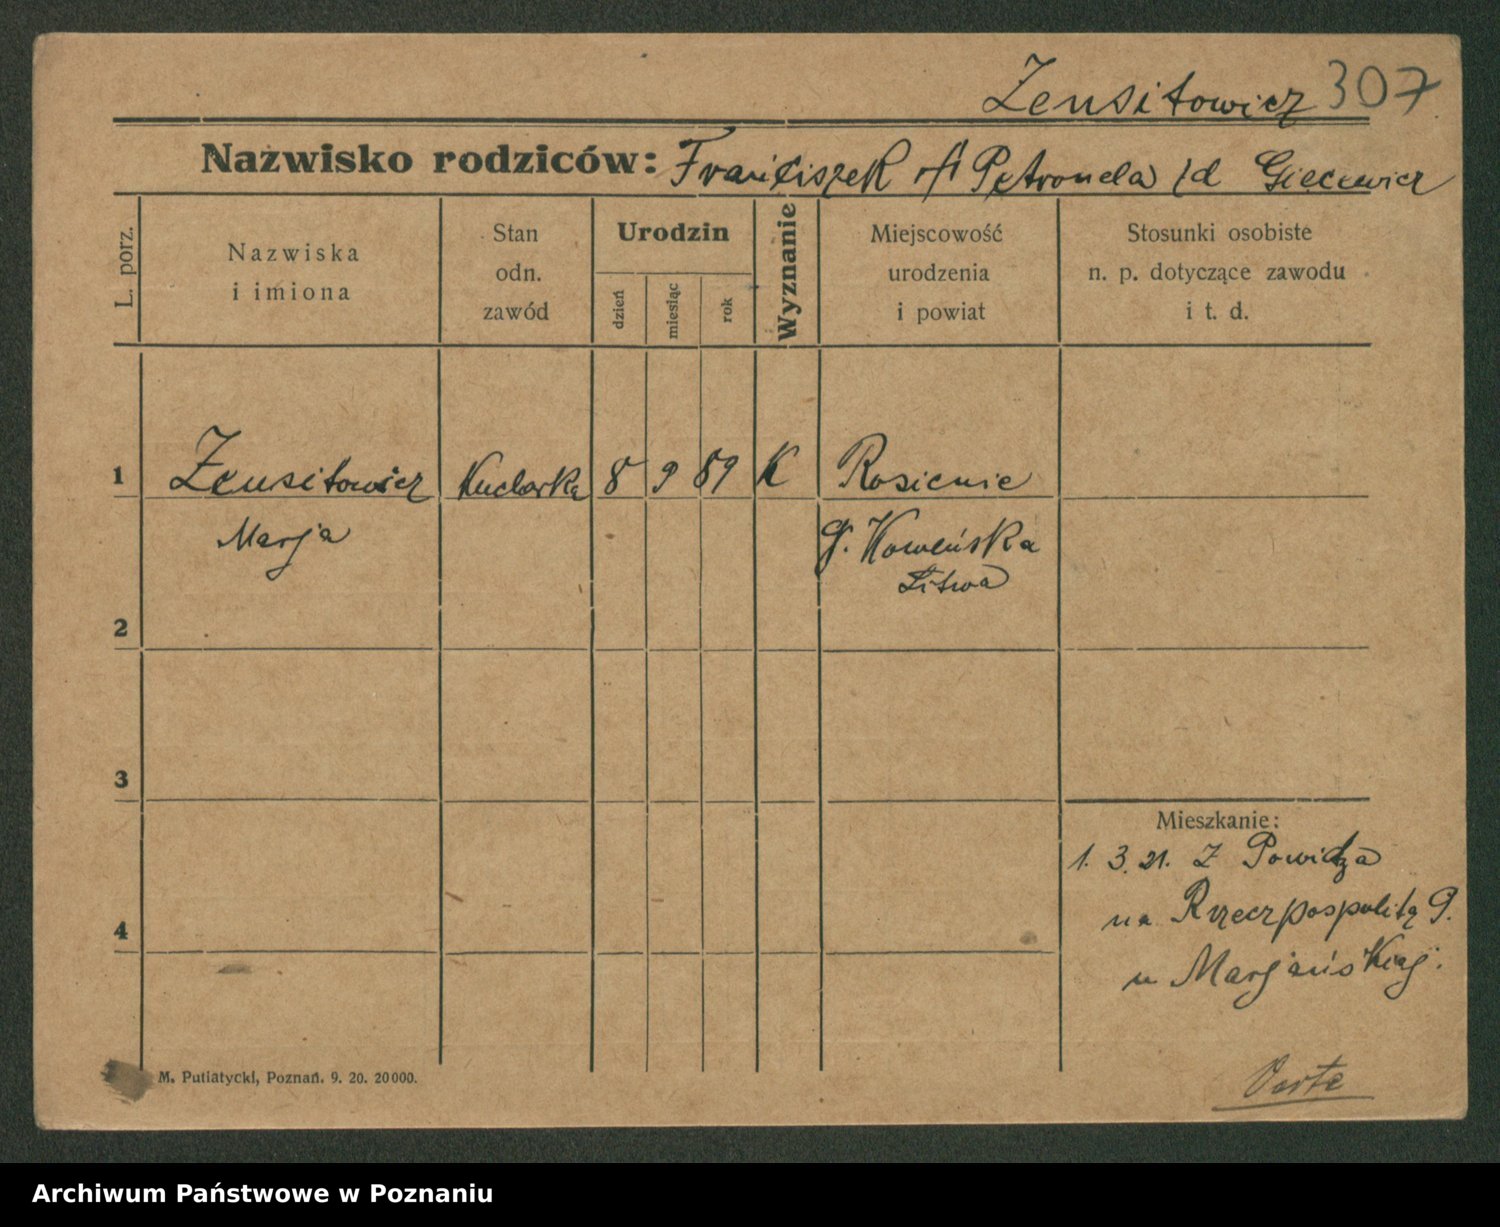 Zensitowicz 307
Nazwisko rodziców: Franciszek i Petronela /d Giecewicz
L. porz.
Nazwiska i imiona
Stan odn. zawód
Urodzin
dzień
miesiąc
rok
Wyznanie
Miejscowość urodzenia i powiat
Stosunki osobiste n. p. dotyczące zawodu i t. d.
1 Zensitowicz Kucharka 8 9 89 K Rosienie
Marja g. Kowieńska
Litwa
2
3
Mieszkanie:
1. 3. 21. Z Powidza
na Rzeczpospolitą 9.
4
u Marjańskiej.
M. Putiatycki, Poznań. 9. 20. 20000.
Archiwum Państwowe w Poznaniu